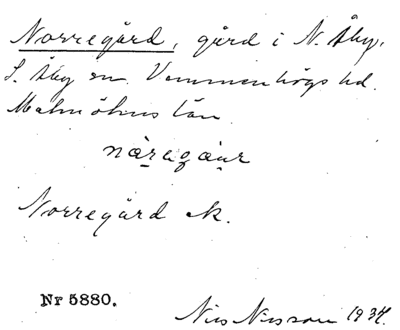 Norregård, gård i N. Åby,
S. Åby sn Vemmenhögs hd.
Malmöhus län
nàrəgɑ̀ur
Norregård ek.
Nr 5880.
Nils Nilsson 1937.